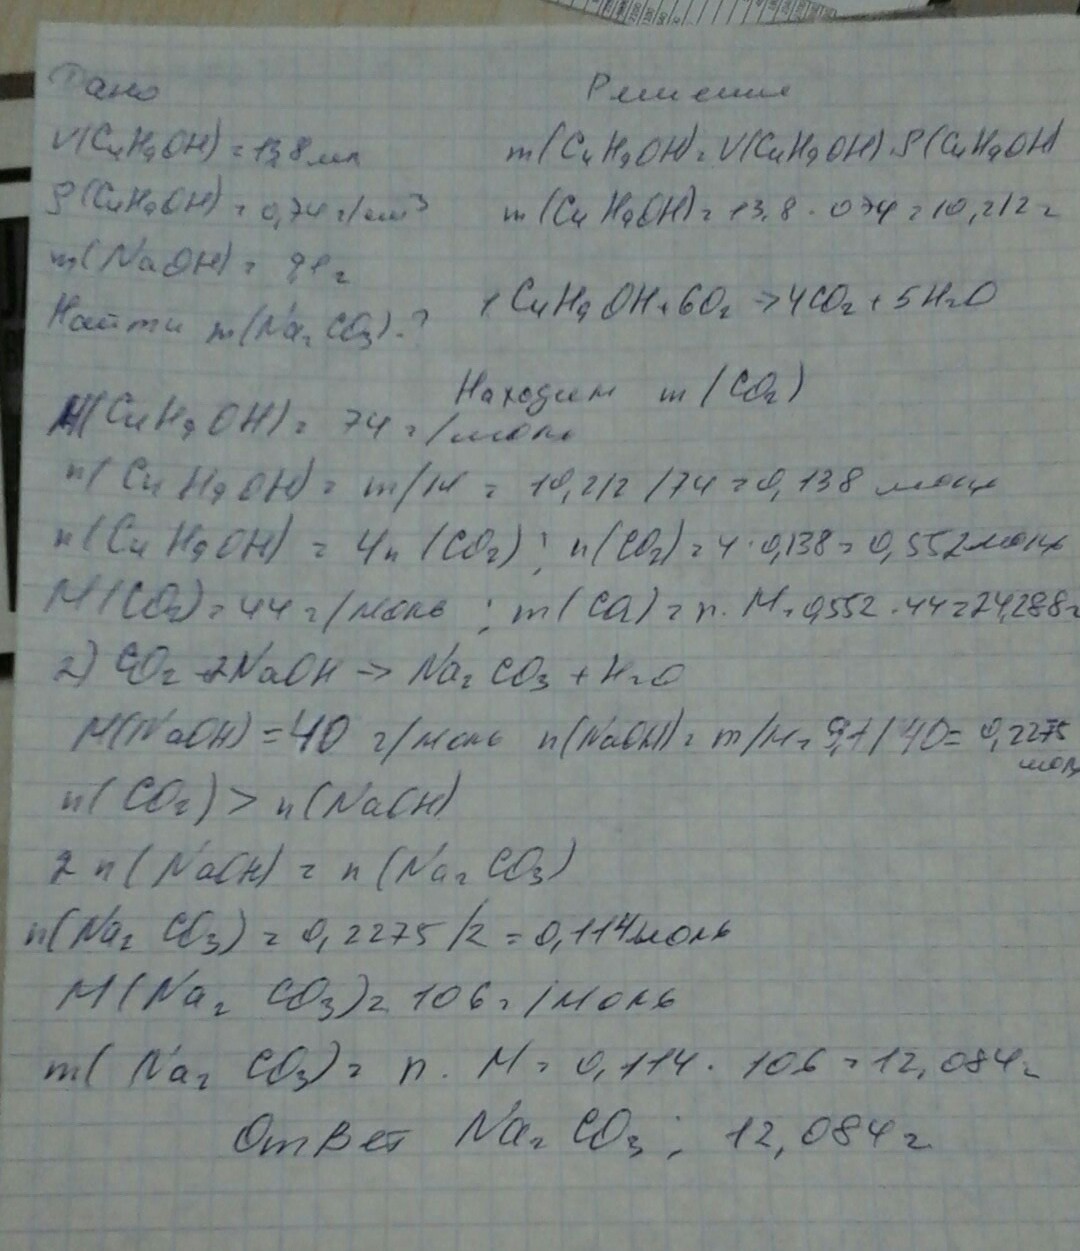 Дано
Решение
V(C4H9OH) = 13,8 мл
m(C4H9OH) = V(C4H9OH) · ρ(C4H9OH)
ρ(C4H9OH) = 0,74 г/см³
m(C4H9OH) = 13,8 · 074 = 10,212 г
m(NaOH) = 91 г
C4H9OH + 6O2 → 4CO2 + 5H2O
Найти m(Na2CO3) - ?
Находим m(CO2)
M(C4H9OH) = 74 г/моль
n(C4H9OH) = m/M = 10,212/74 = 0,138 моль
n(C4H9OH) = 4n(CO2) ; n(CO2) = 4·0,138 = 0,552 моль
M(CO2) = 44 г/моль ; m(CO2) = n · M = 0,552 · 44 = 24,288 г
2) CO2 + 2NaOH → Na2CO3 + H2O
M(NaOH) = 40 г/моль n(NaOH) = m/M = 9,1/40 = 0,2275
моль
n(CO2) > n(NaOH)
2n(NaOH) = n(Na2CO3)
n(Na2CO3) = 0,2275/2 = 0,114 моль
M(Na2CO3) = 106 г/моль
m(Na2CO3) = n · M = 0,114 · 106 = 12,084 г
Ответ Na2CO3 ; 12,084 г